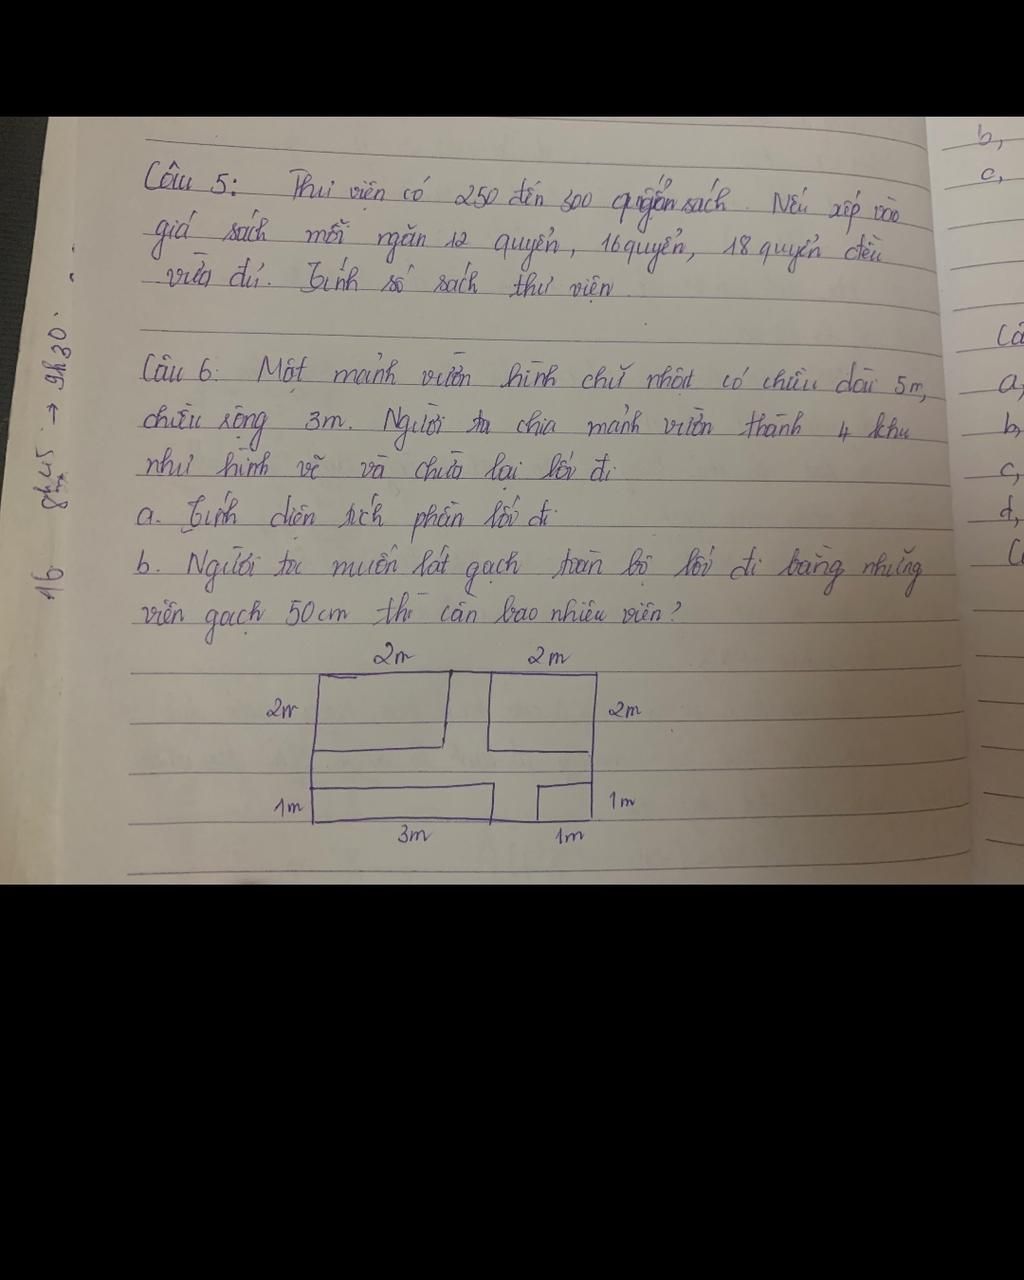 Câu 5: Thư viện có 250 đến 300 quyển sách. Nếu xếp vào
giá sách mỗi ngăn 12 quyển, 16 quyển, 18 quyển đều
vừa đủ. Tính số sách thư viện.
Câu 6: Một mảnh vườn hình chữ nhật có chiều dài 5m,
chiều rộng 3m. Người ta chia mảnh vườn thành 4 khu
như hình vẽ và chừa lại lối đi
a. Tính diện tích phần lối đi.
b. Người ta muốn lát gạch toàn bộ lối đi bằng những
viên gạch 50cm thì cần bao nhiêu viên?
2m 2m
2m 2m
1m 1m
3m 1m
16 8h45 → 9h30.
b,
c,
a,
b,
c,
d,